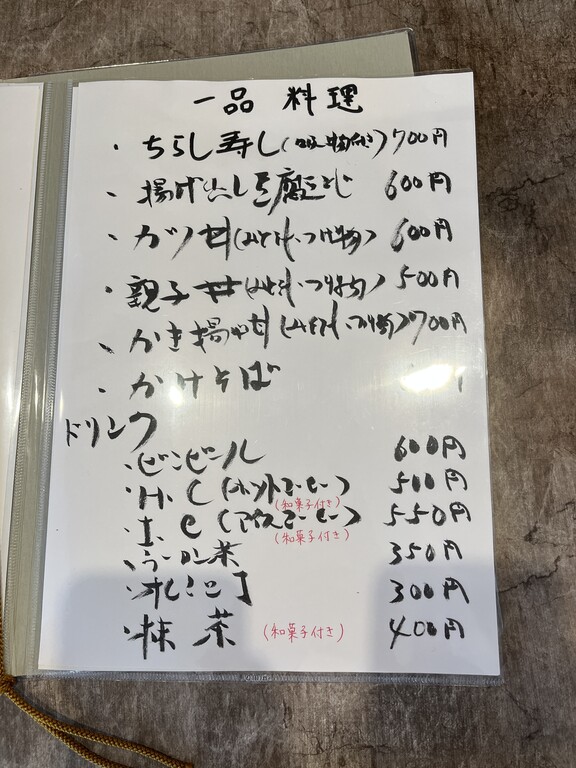 一品 料理
・ちらし寿し(吸物付き)700円
・揚げ出し豆腐とじ 600円
・カツ丼(みそ汁、つけ物) 600円
・親子丼(みそ汁、つけ物) 500円
・かき揚げ丼(みそ汁、つけ物)700円
・かけそば
ドリンク
・ビンビール 600円
・H.C(ホットコーヒー) 500円
(和菓子付き)
・I.C(アイスコーヒー) 550円
(和菓子付き)
・ウーロン茶 350円
・オレンジ 300円
・抹茶 (和菓子付き) 400円